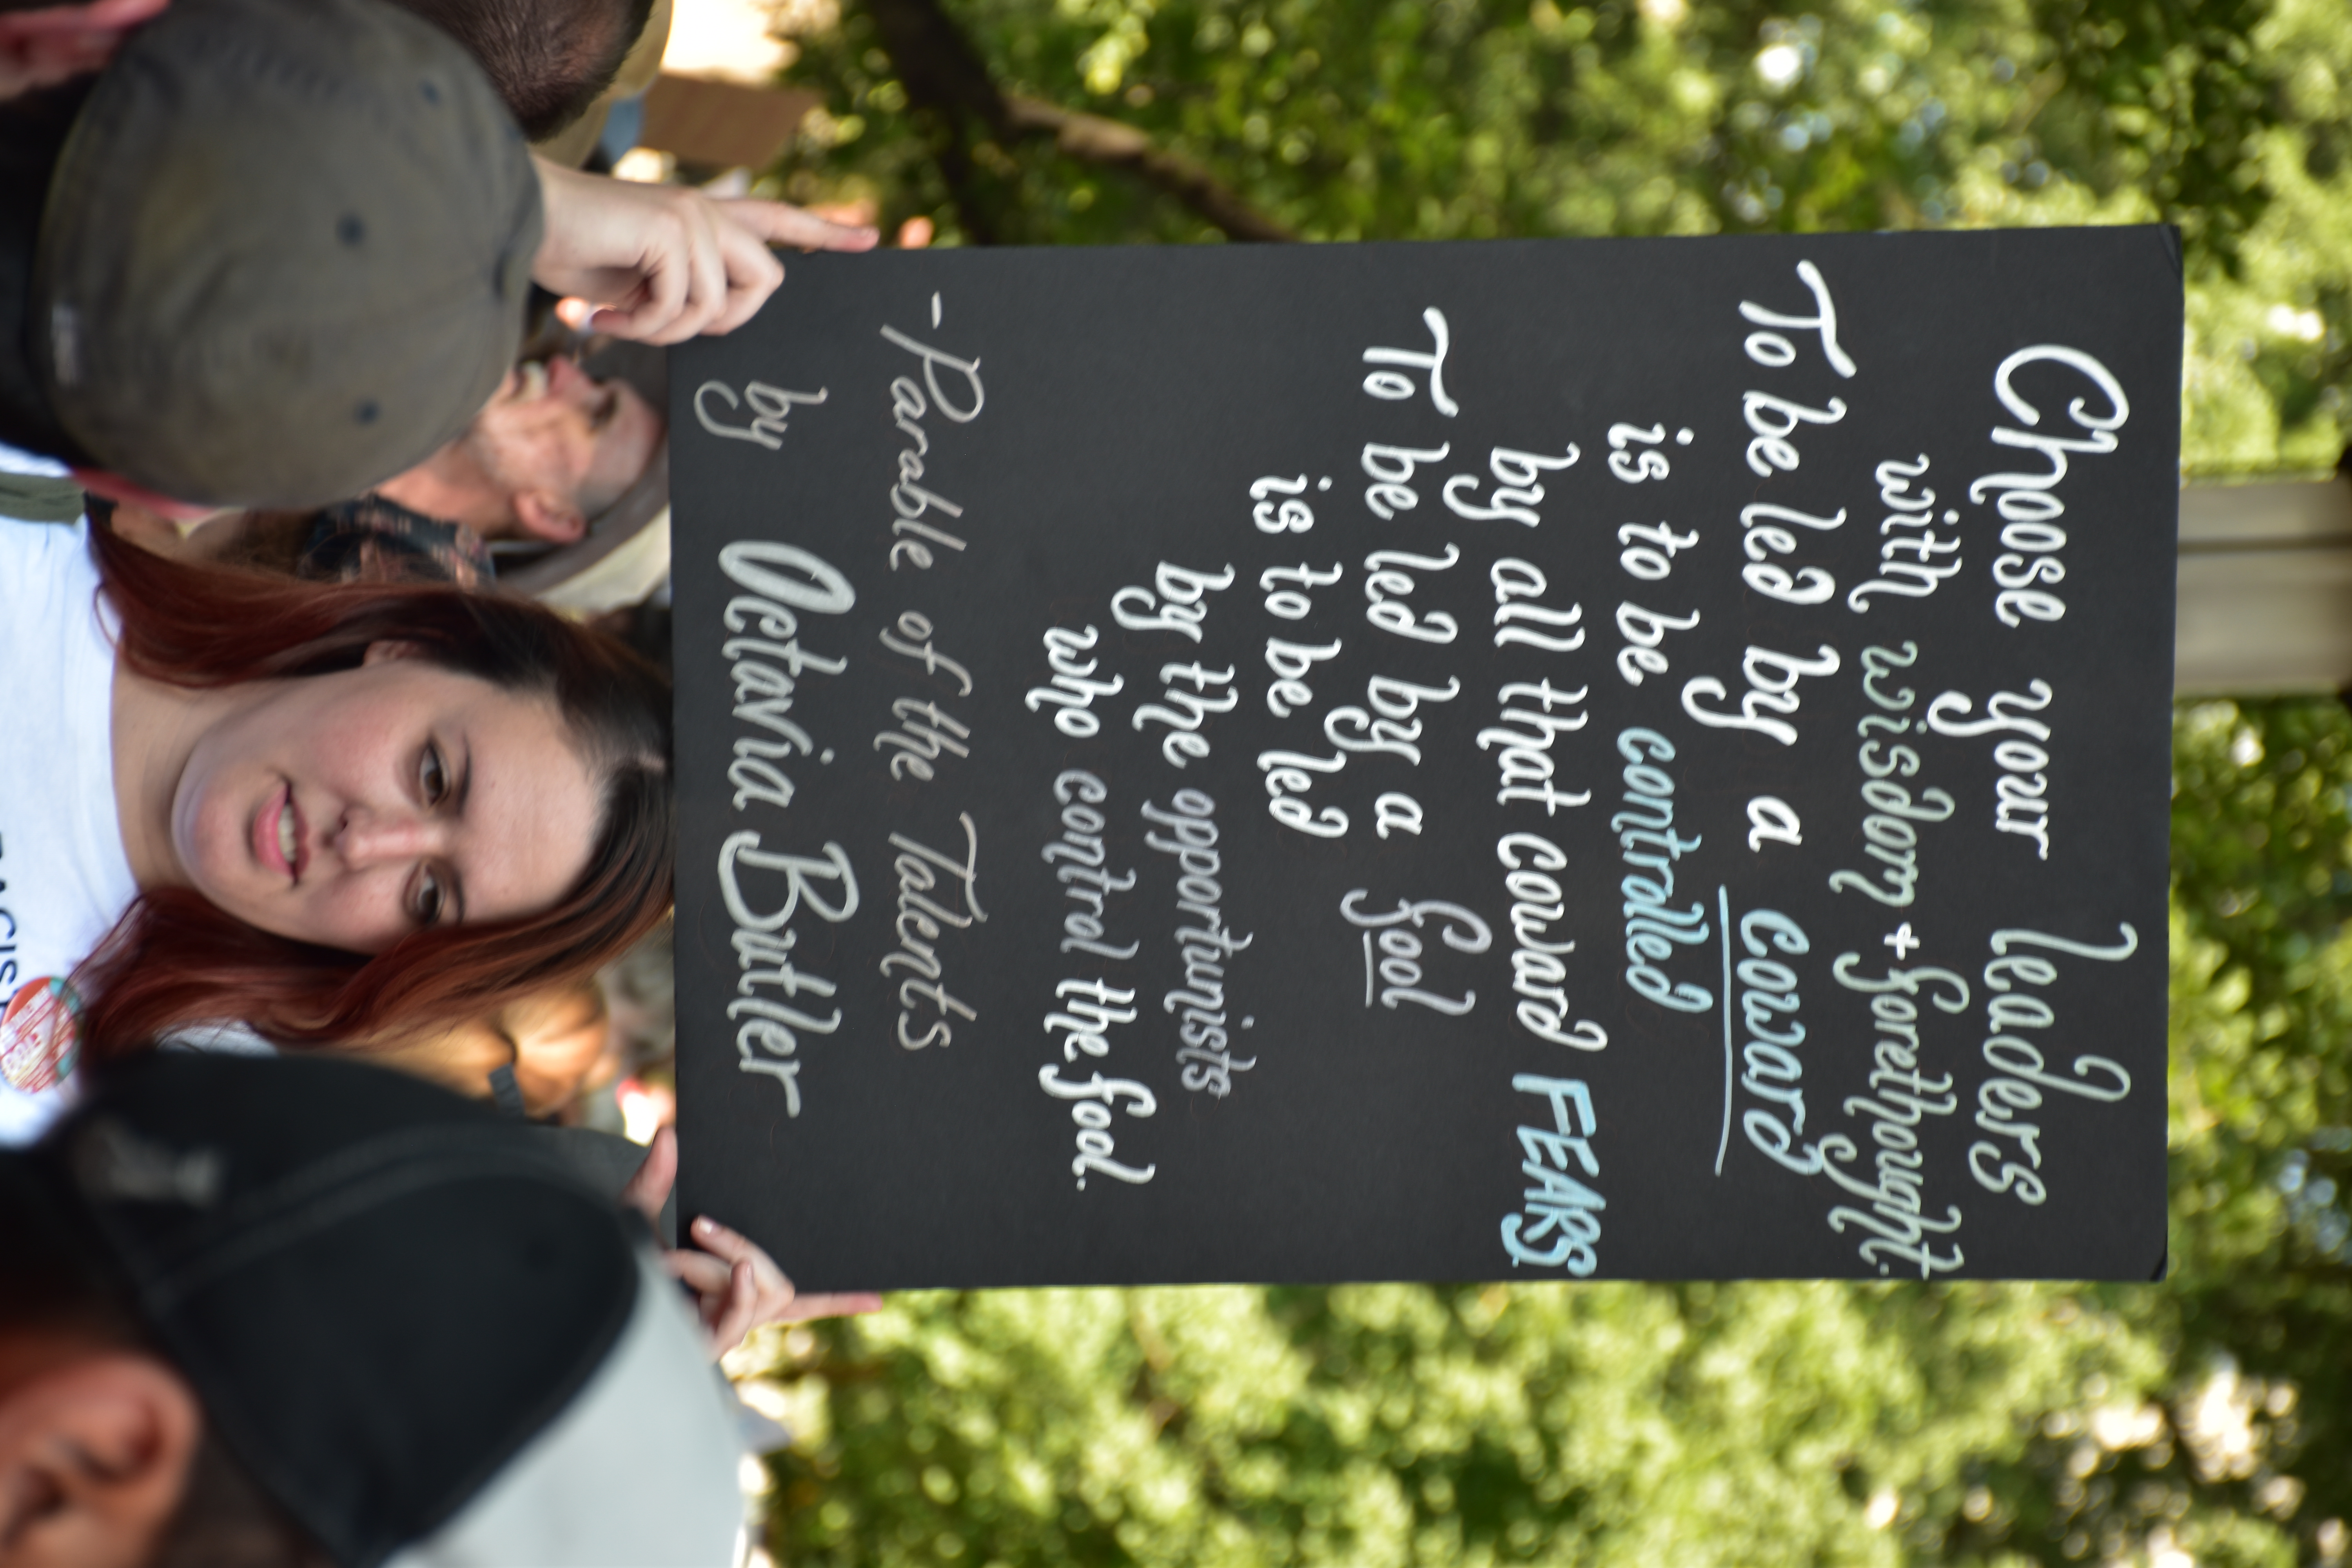 Choose your leaders
with wisdom + forethought.
To be led by a coward
is to be controlled
by all that coward FEARS
To be led by a fool
is to be led
by the opportunists
who control the fool.
-Parable of the Talents
by Octavia Butler